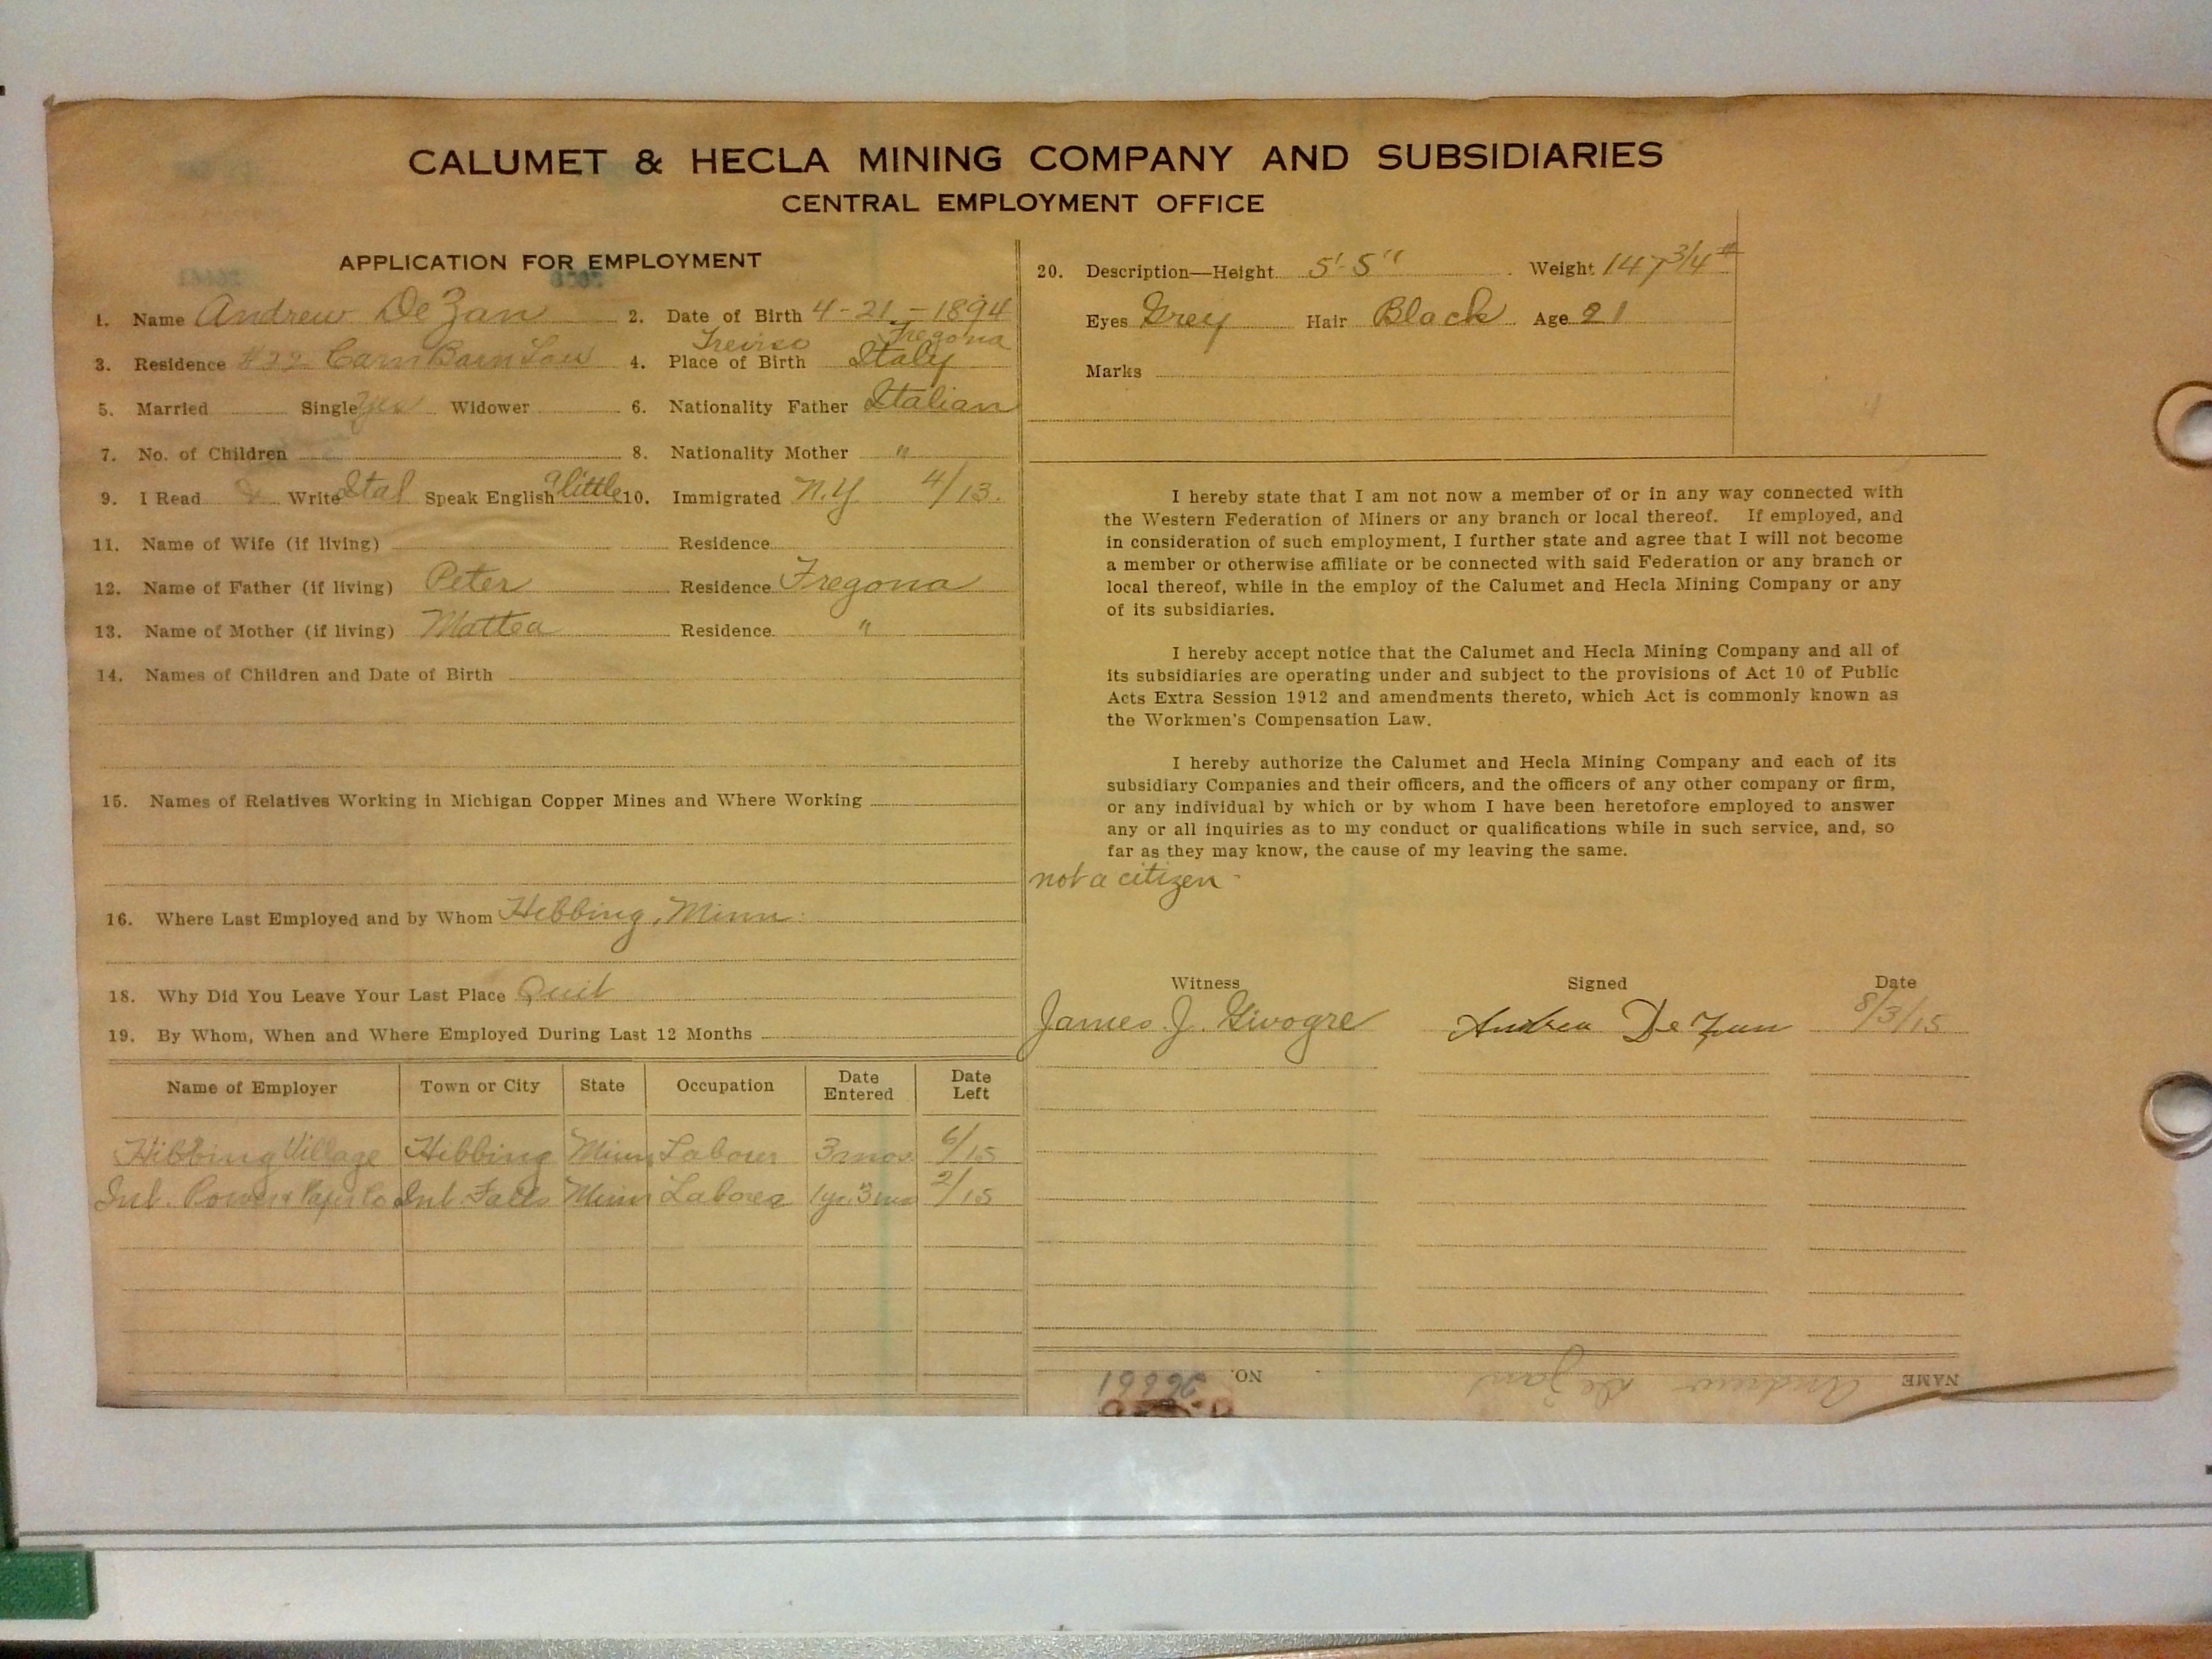 CALUMET & HECLA MINING COMPANY AND SUBSIDIARIES
CENTRAL EMPLOYMENT OFFICE
APPLICATION FOR EMPLOYMENT
1. Name Andrew De Zan 2. Date of Birth 4-21-1894
Treviso Fregona
3. Residence #22 Carn Barn 4. Place of Birth Italy
5. Married Single Yes Widower 6. Nationality Father Italian
7. No. of Children 8. Nationality Mother "
9. I Read & Write Ital Speak English A little 10. Immigrated N.Y. 4/13.
11. Name of Wife (if living) Residence
12. Name of Father (if living) Peter Residence Fregona
13. Name of Mother (if living) Mattea Residence "
14. Names of Children and Date of Birth
15. Names of Relatives Working in Michigan Copper Mines and Where Working
16. Where Last Employed and by Whom Hibbing, Minn.
18. Why Did You Leave Your Last Place Quit
19. By Whom, When and Where Employed During Last 12 Months
Name of Employer Town or City State Occupation Date Entered Date Left
Hibbing Village Hibbing Minn Laborer 3 mos 6/15
Int. Power & Paper Co Int. Falls Minn Laborer 1 yr. 3 mos 2/15
20. Description—Height 5'-5" Weight 147 3/4 #
Eyes Grey Hair Black Age 21
Marks
I hereby state that I am not now a member of or in any way connected with
the Western Federation of Miners or any branch or local thereof. If employed, and
in consideration of such employment, I further state and agree that I will not become
a member or otherwise affiliate or be connected with said Federation or any branch or
local thereof, while in the employ of the Calumet and Hecla Mining Company or any
of its subsidiaries.
I hereby accept notice that the Calumet and Hecla Mining Company and all of
its subsidiaries are operating under and subject to the provisions of Act 10 of Public
Acts Extra Session 1912 and amendments thereto, which Act is commonly known as
the Workmen's Compensation Law.
I hereby authorize the Calumet and Hecla Mining Company and each of its
subsidiary Companies and their officers, and the officers of any other company or firm,
or any individual by which or by whom I have been heretofore employed to answer
any or all inquiries as to my conduct or qualifications while in such service, and, so
far as they may know, the cause of my leaving the same.
not a citizen
Witness Signed Date
James J. Givogre Andrea De Zan 8/3/15
NAME Andrew De Zan NO. 26661